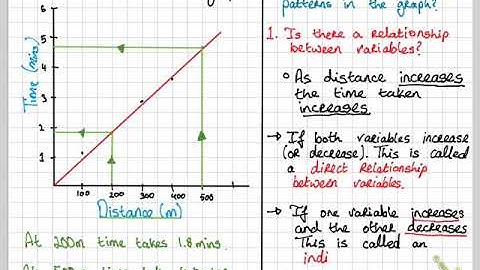 patterns in the graph?
1. Is there a relationship
between variables?
As distance increases
the time taken
increases
→ If both variables increase
(or decrease). This is called
a direct relationship
between variables.
→ If one variable increases
and the other decreases
This is called an
indi
Time (mins)
5
4
3
2
1
100
200
300
400
500
Distance (m)
At 200m time takes 1.8 mins.